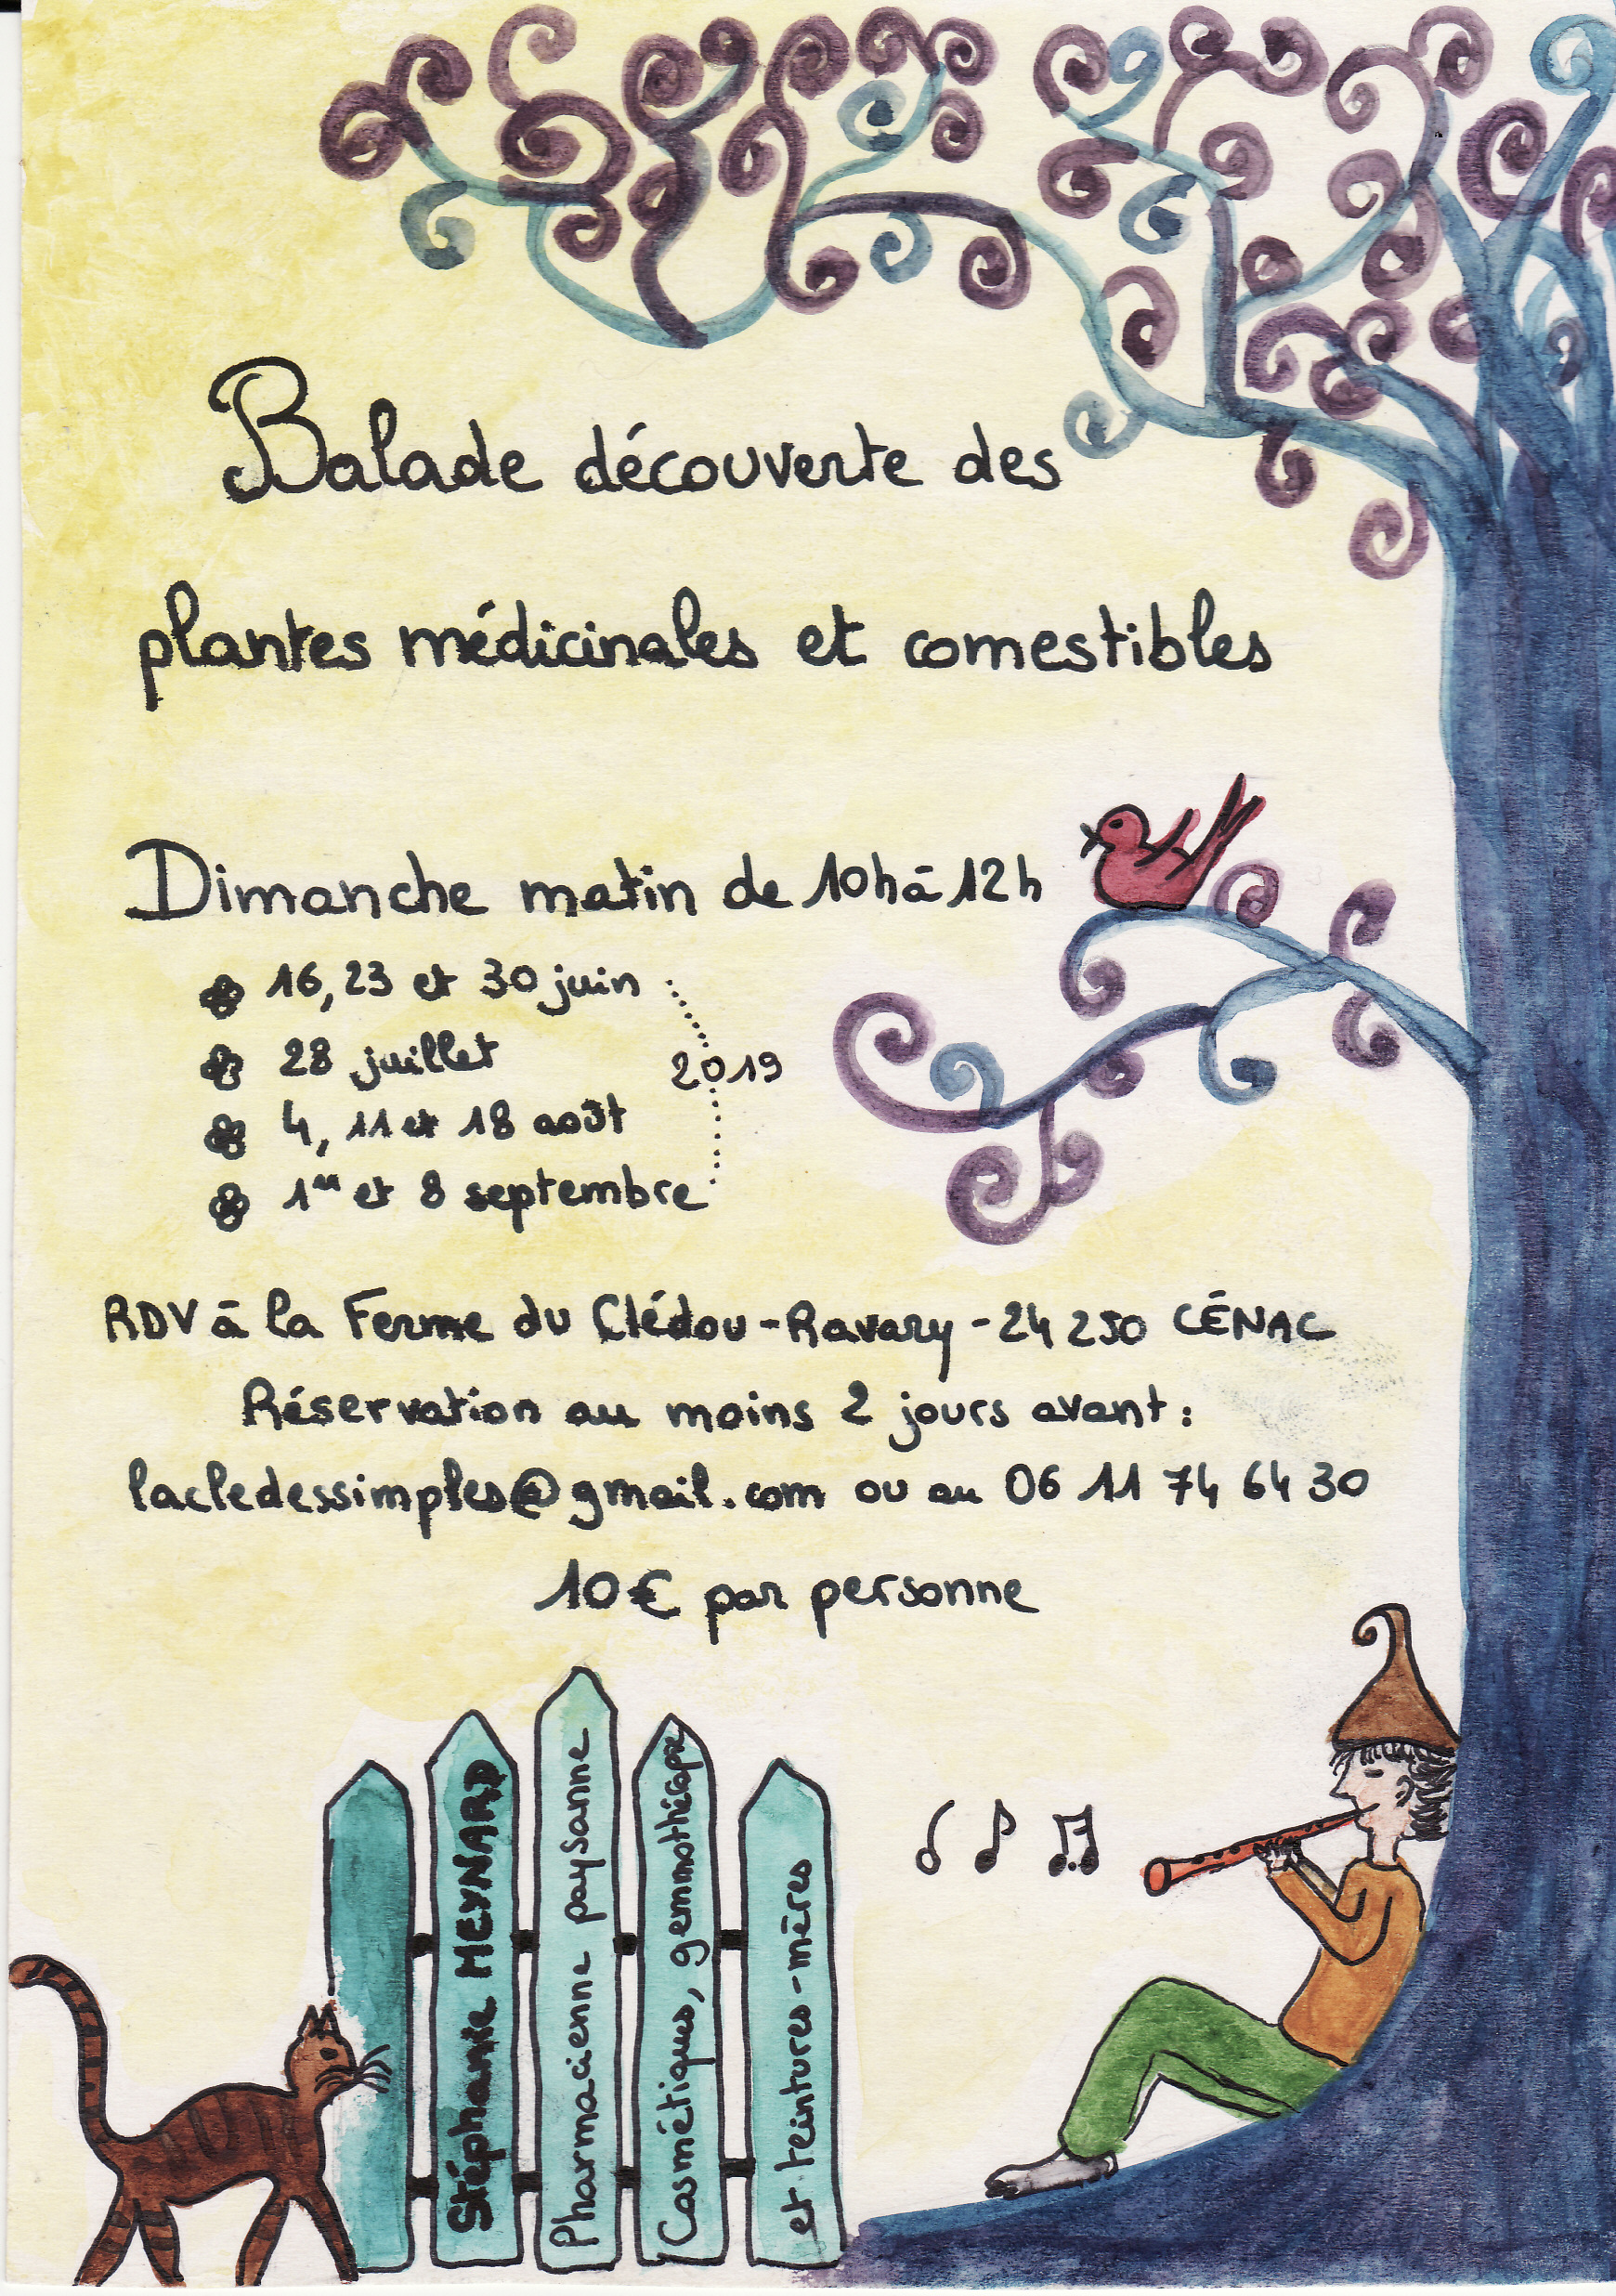 Balade découverte des
plantes médicinales et comestibles
Dimanche matin de 10h à 12h
16, 23 et 30 juin
28 juillet
4, 11 et 18 août
1er et 8 septembre
2019
RDV à la Ferme du Clédou - Ravary - 24 250 CÉNAC
Réservation au moins 2 jours avant :
lacledessimples@gmail.com ou au 06 11 74 64 30
10€ par personne
Stéphanie MEYNARD
Pharmacienne paysanne
Cosmétiques, gemmothérapie
et teintures-mères